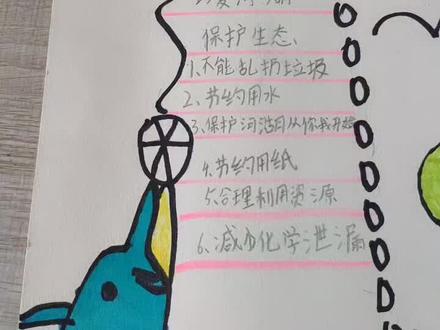 保护生态、
1、不能乱扔垃圾
2、节约用水
3、保护河湖从你我开始
4、节约用纸
5、合理利用资源
6、减少化学泄漏